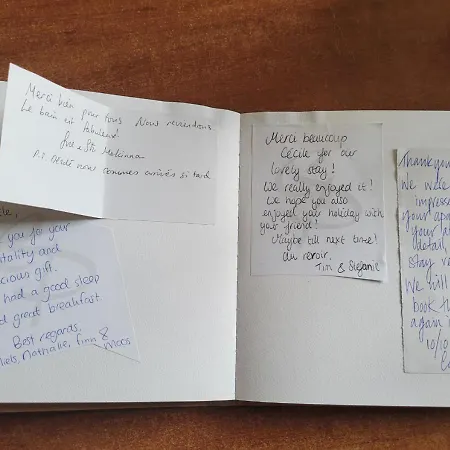 Merci bien pour tous Nous reviendrons
Le bain est fabuleux!
Sue & Ste
P.S. nous sommes arrivés si tard
you for your
tality and
cious gift.
had a good sleep
d great breakfast
Best regards,
iels, Nathalie, Finn &
Macs
Merci beaucoup
Cécile for our
lovely stay!
We really enjoyed it!
We hope you also
enjoyed your holiday with
your friend!
Maybe till next time!
au revoir.
Tim & Stefanie
Thank you
We were
impress
your apa
your
detail,
stay
We will
book th
again
10/10